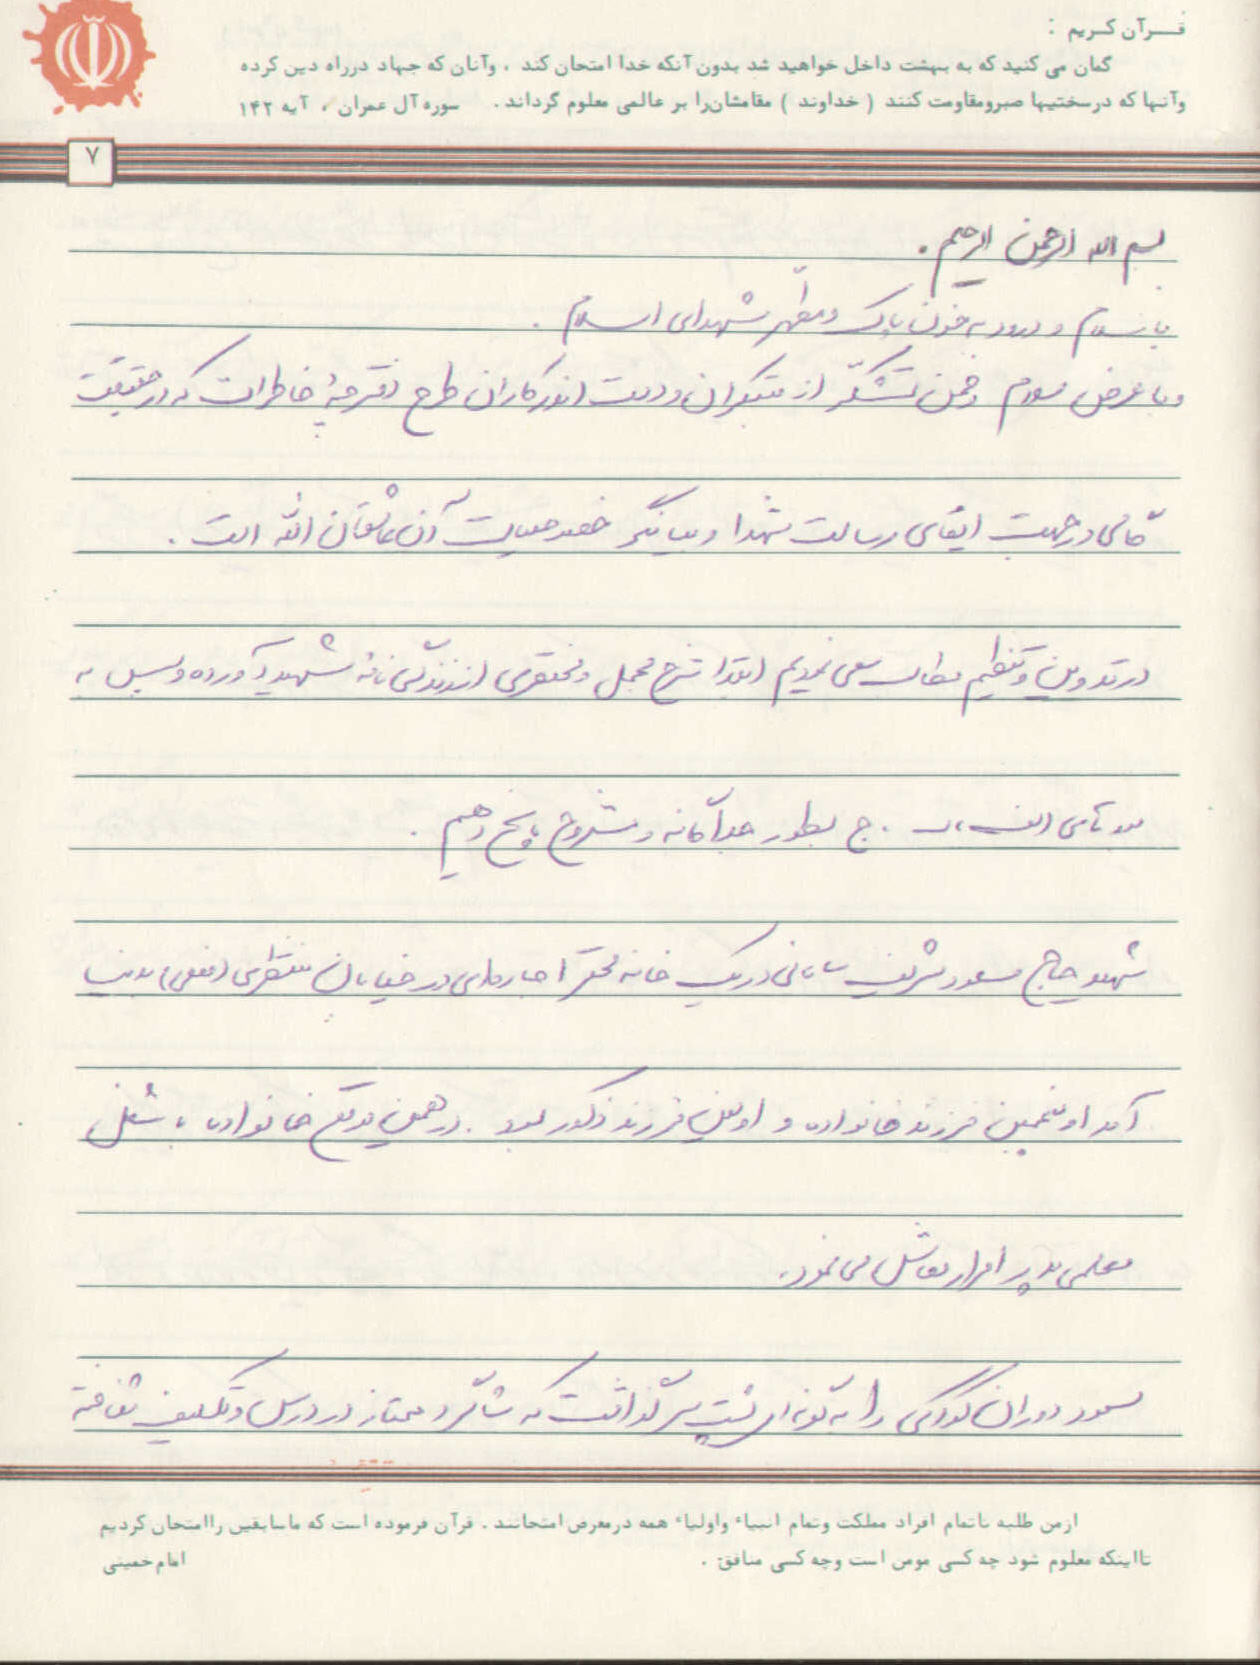 قـرآن کـریم :
گمان می کنید که به بهشت داخل خواهید شد بدون آنکه خدا امتحان کند ، وآنان که جهاد درراه دین کرده
وآنها که درسختیها صبرومقاومت کنند ( خداوند ) مقامشان‌را بر عالمی معلوم گرداند . سوره آل عمران ، آیه ۱۴۲
۷
بسم الله الرحمن الرحیم .
با سلام و درود به خون پاک و مطهر شهدای اسلام .
و با عرض سلام و ضمن تشکّر از مبتکران و دست اندرکاران طرح دفترچهٔ خاطرات که در حقیقت
گامی در جهت ایفای رسالت شهدا و بیانگر خصوصیات آن عاشقان الله است .
در تدوین و تنظیم مطالب سعی نمودیم ابتدا شرح مجمل و مختصری از زندگی نامهٔ شهید آورده و سپس به
الف . ب . ج بطور جداگانه و مشروح پاسخ دهیم .
شهید حاج مسعود شریف در یک خانه محقر اجاره‌ای در خیابان منتظری بدنیا
آمد او پنجمین فرزند خانواده و اولین فرزند ذکور بود . در همین موقع خانواده با شغل
معلمی پدر امرار معاش می نمود .
مسعود دوران کودکی را به گونه ای پشت سر گذاشت که شاگرد ممتاز در درس و تکلیف شناخته
ازمن طلبه تاتمام افراد مملکت وتمام انبیاء واولیاء همه درمعرض امتحانند . قرآن فرموده است که ماسابقین راامتحان کردیم
تااینکه معلوم شود چه کسی مومن است وچه کسی منافق . امام‌خمینی